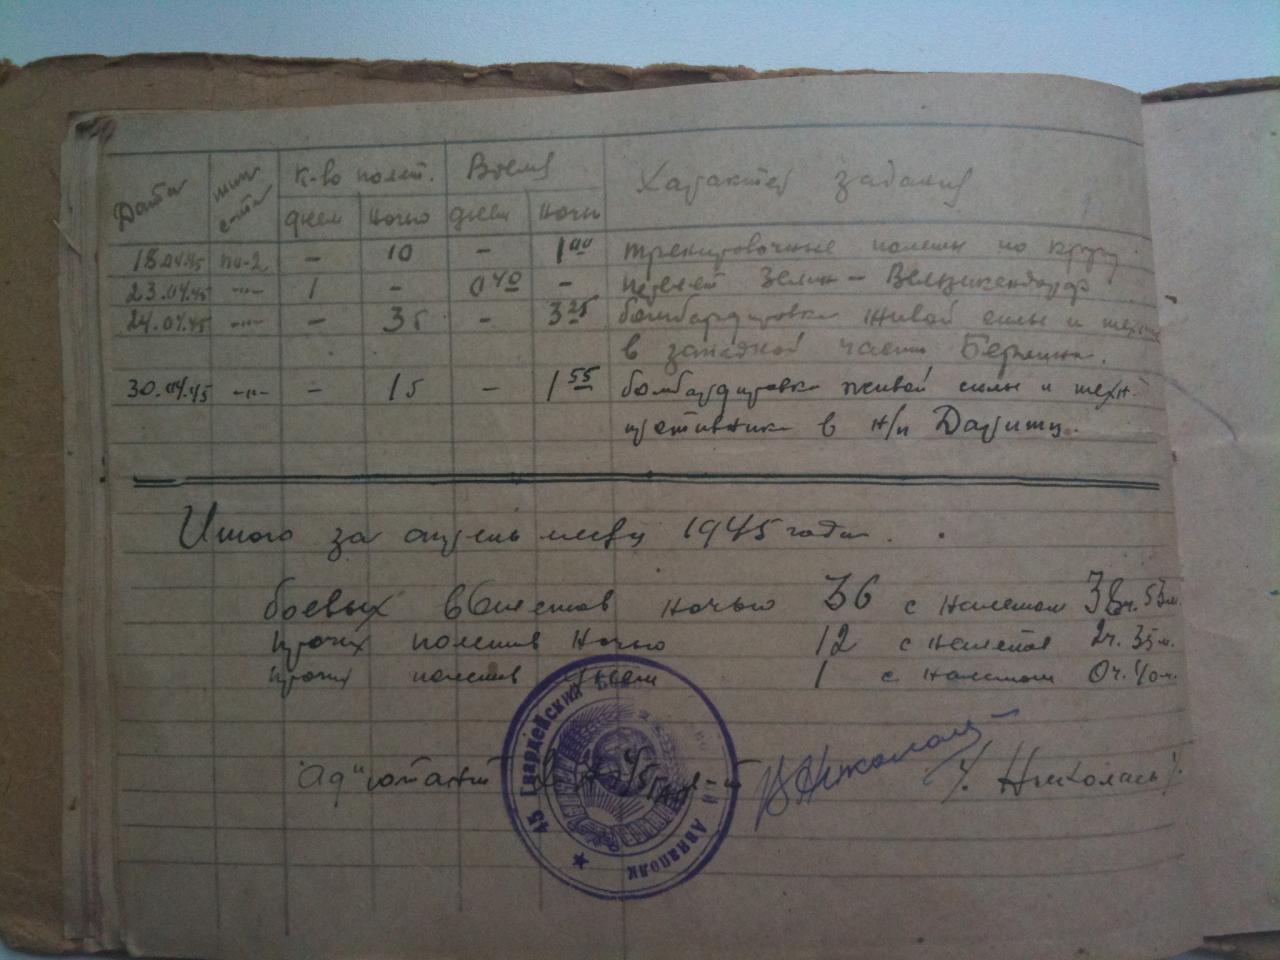 Дата тип с-та К-во полет. Время Характер задания
днем ночью днем ночью
18.04.45 По-2 – 10 – 1 00 тренировочные полеты по кругу
23.04.45 –"– 1 – 0 40 – перелет Зелин – Вельзикендорф
24.04.45 –"– – 35 – 3 25 бомбардировка живой силы и техн
в западной части Берлина.
30.04.45 –"– – 15 – 1 55 бомбардировка живой силы и техн.
противника в н/п
Итого за апрель месяц 1945 года.
боевых вылетов ночью 36 с налетом 53м.
прочих полетов ночью 12 с налетом 2ч. 35м.
прочих полетов днем 1 с налетом 0ч. 40м.
Ад"ютант 45 ГАП
45 Гвардейский Авиаполк